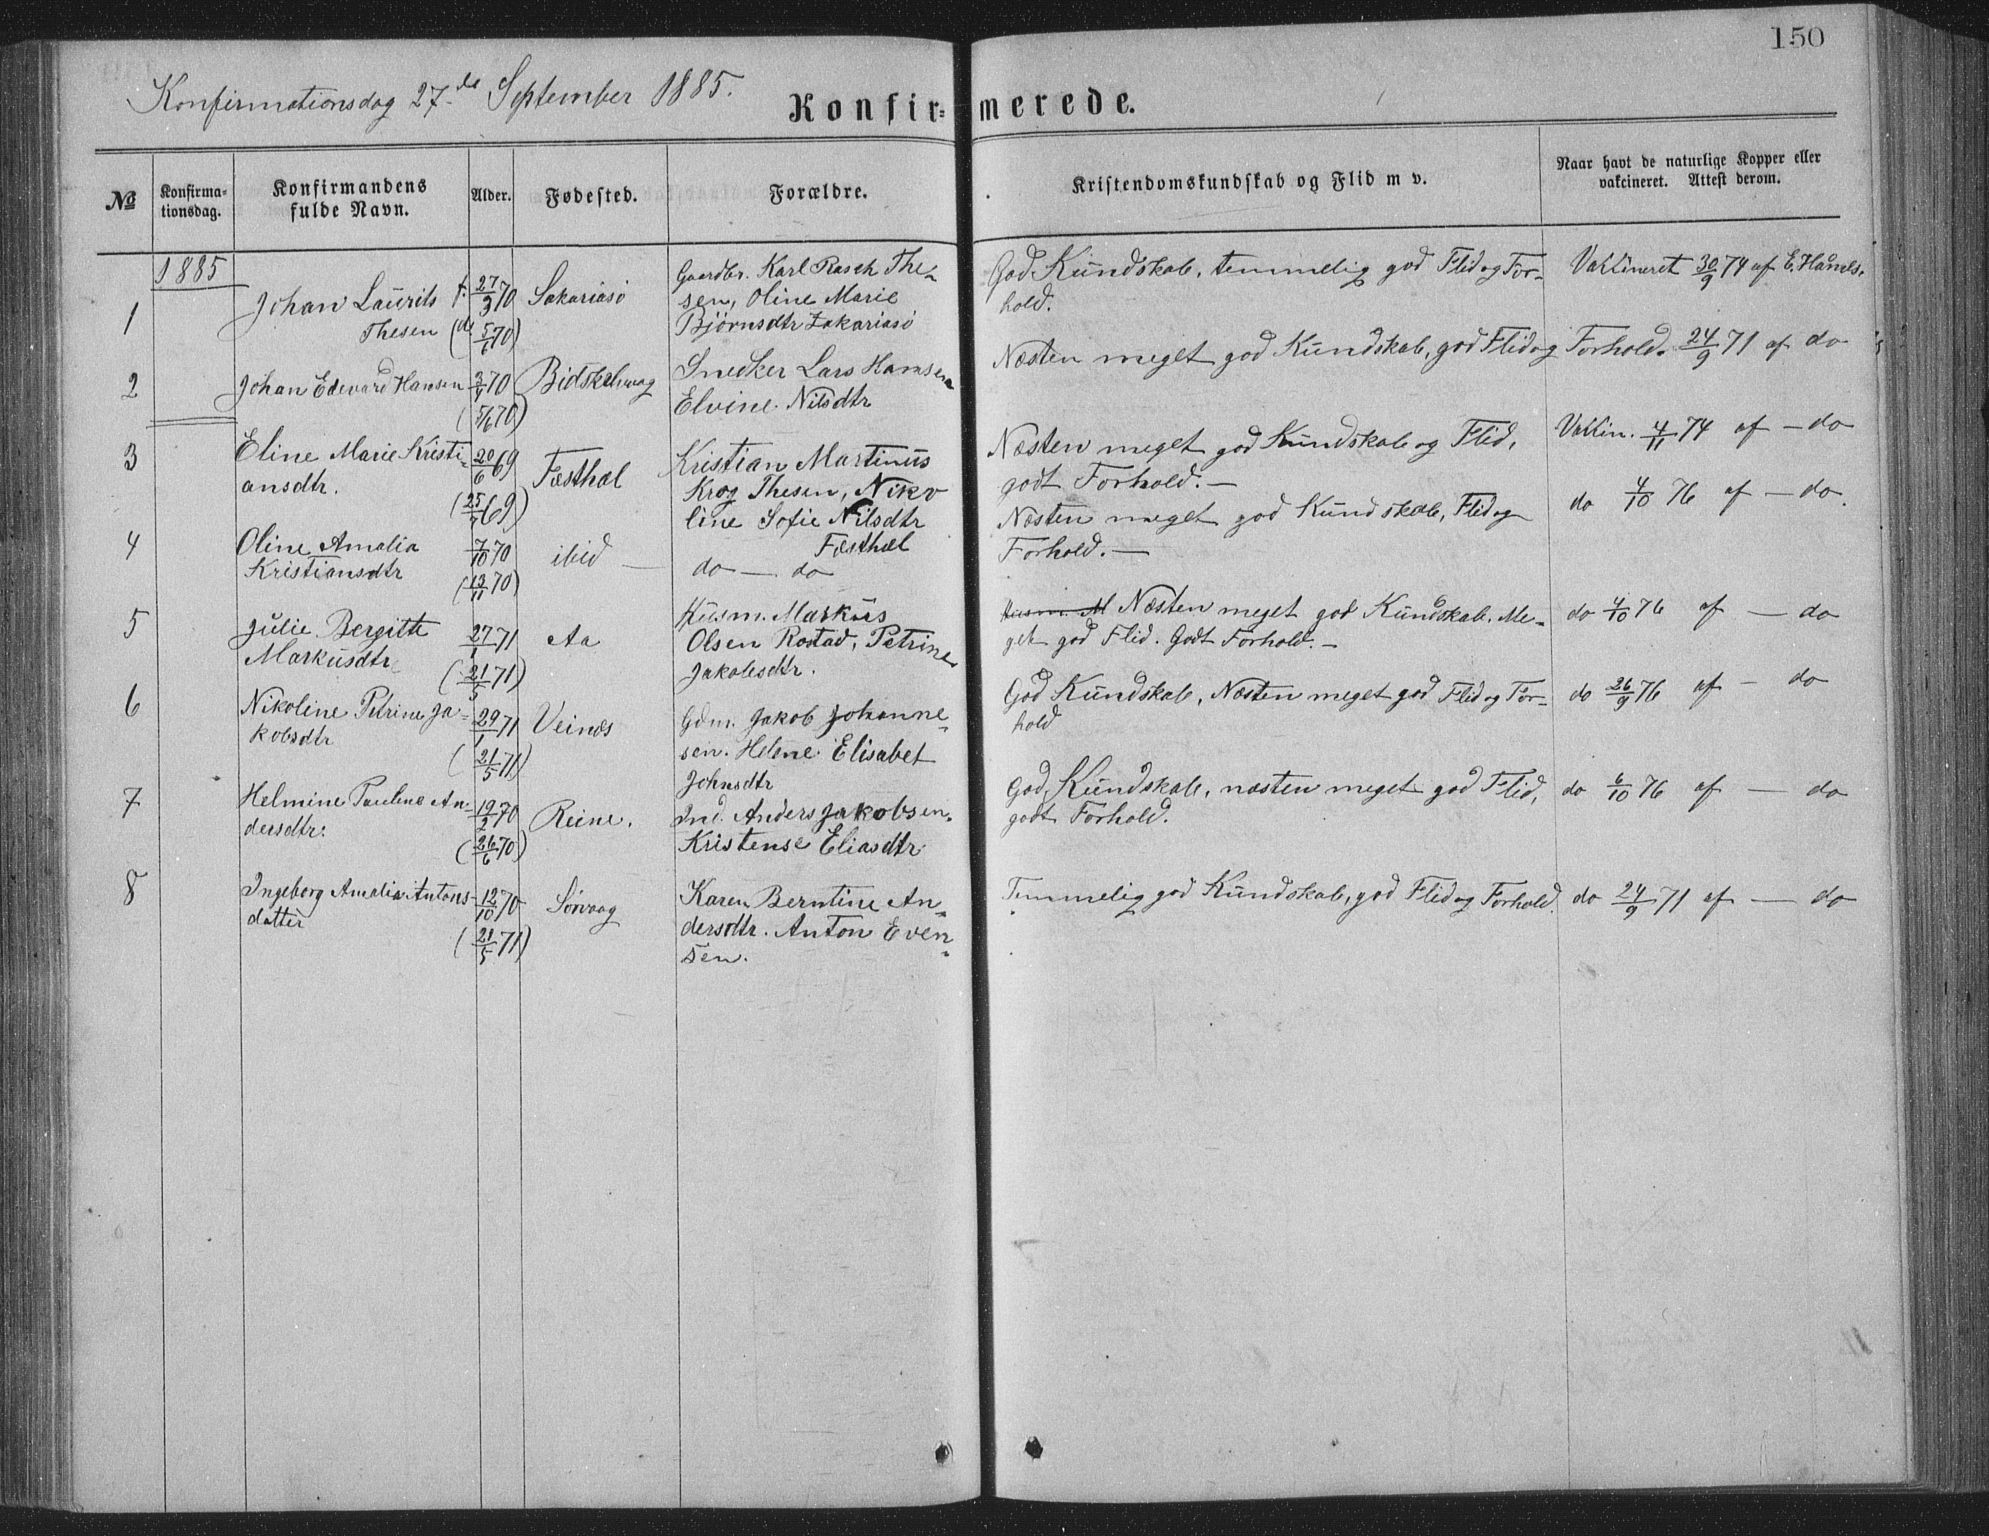 150
Konfirmationsdag 27de September 1885.
Konfir= merede.
No
Konfirma= tionsdag.
Konfirmandens fulde Navn.
Alder.
Fødested.
Forældre.
Kristendomskundskab og Flid m v.
Naar havt de naturlige Kopper eller vakcineret. Attest derom.
1885
1 Johan Laurits f. 27/3 70 Sakariasø Gaardbr. Karl Rasch The- God Kundskab, temmelig god Flid og For- Vaktineret 30/9 74 af E. Hanels.
Thesen (d. 5/6 70) sen, Oline Marie hold.
Björnsdtr Zakariasø
2 Johan Edevard Hansen 3/4 70 Snedker Lars Hansen Næsten meget god Kundskab, god Flid og Forhold. 24/9 71 af do
(5/6 70) Elvine Nilsdtr
3 Eline Marie Kristi- 20/6 69 Festhæl Kristian Martinus Næsten meget god Kundskab og Flid, Vaktin. 4/11 74 af - do
ansdtr. (25/7 69) Krog Thesen, Niko godt Forhold. -
line Sofie Nilsdtr
Festhæl
4 Oline Amalia 7/10 70 ibid - do - do Næsten meget god Kundskab, Flid og do 4/10 76 af - do.
Kristiansdtr (13/11 70) Forhold. -
5 Julie Bergitte 27/1 71 Aa Husm. Markus Husm. M Næsten meget god Kundskab. Me- do 4/10 76 af - do
Markusdtr (21/5 71) Olsen Rostad, Petrine get god Flid. Godt Forhold. -
Jakobsdtr.
6 Nikoline Petrine Ja- 29/1 71 Veinæs Gdm. Jakob Johanne- God Kundskab, Næsten meget god Flid og For- do 26/9 76 af - do
kobsdtr (21/5 71) sen. Helene Elisabet hold
Johnsdtr
7 Helmine Pauline An- 19/2 70 Reine. Ind. Anders Jakobsen. God Kundskab, næsten meget god Flid, do 6/10 76 af - do
dersdtr. (26/6 70) Kristense Eliasdtr godt Forhold.
8 Ingeborg Amalia Antons- 12/10 70 Sörvaag Karen Berntine An- Temmelig god Kundskab, god Flid og Forhold. do 24/9 71 af - do
datter (21/5 71) dersdtr. Anton Even-
sen.